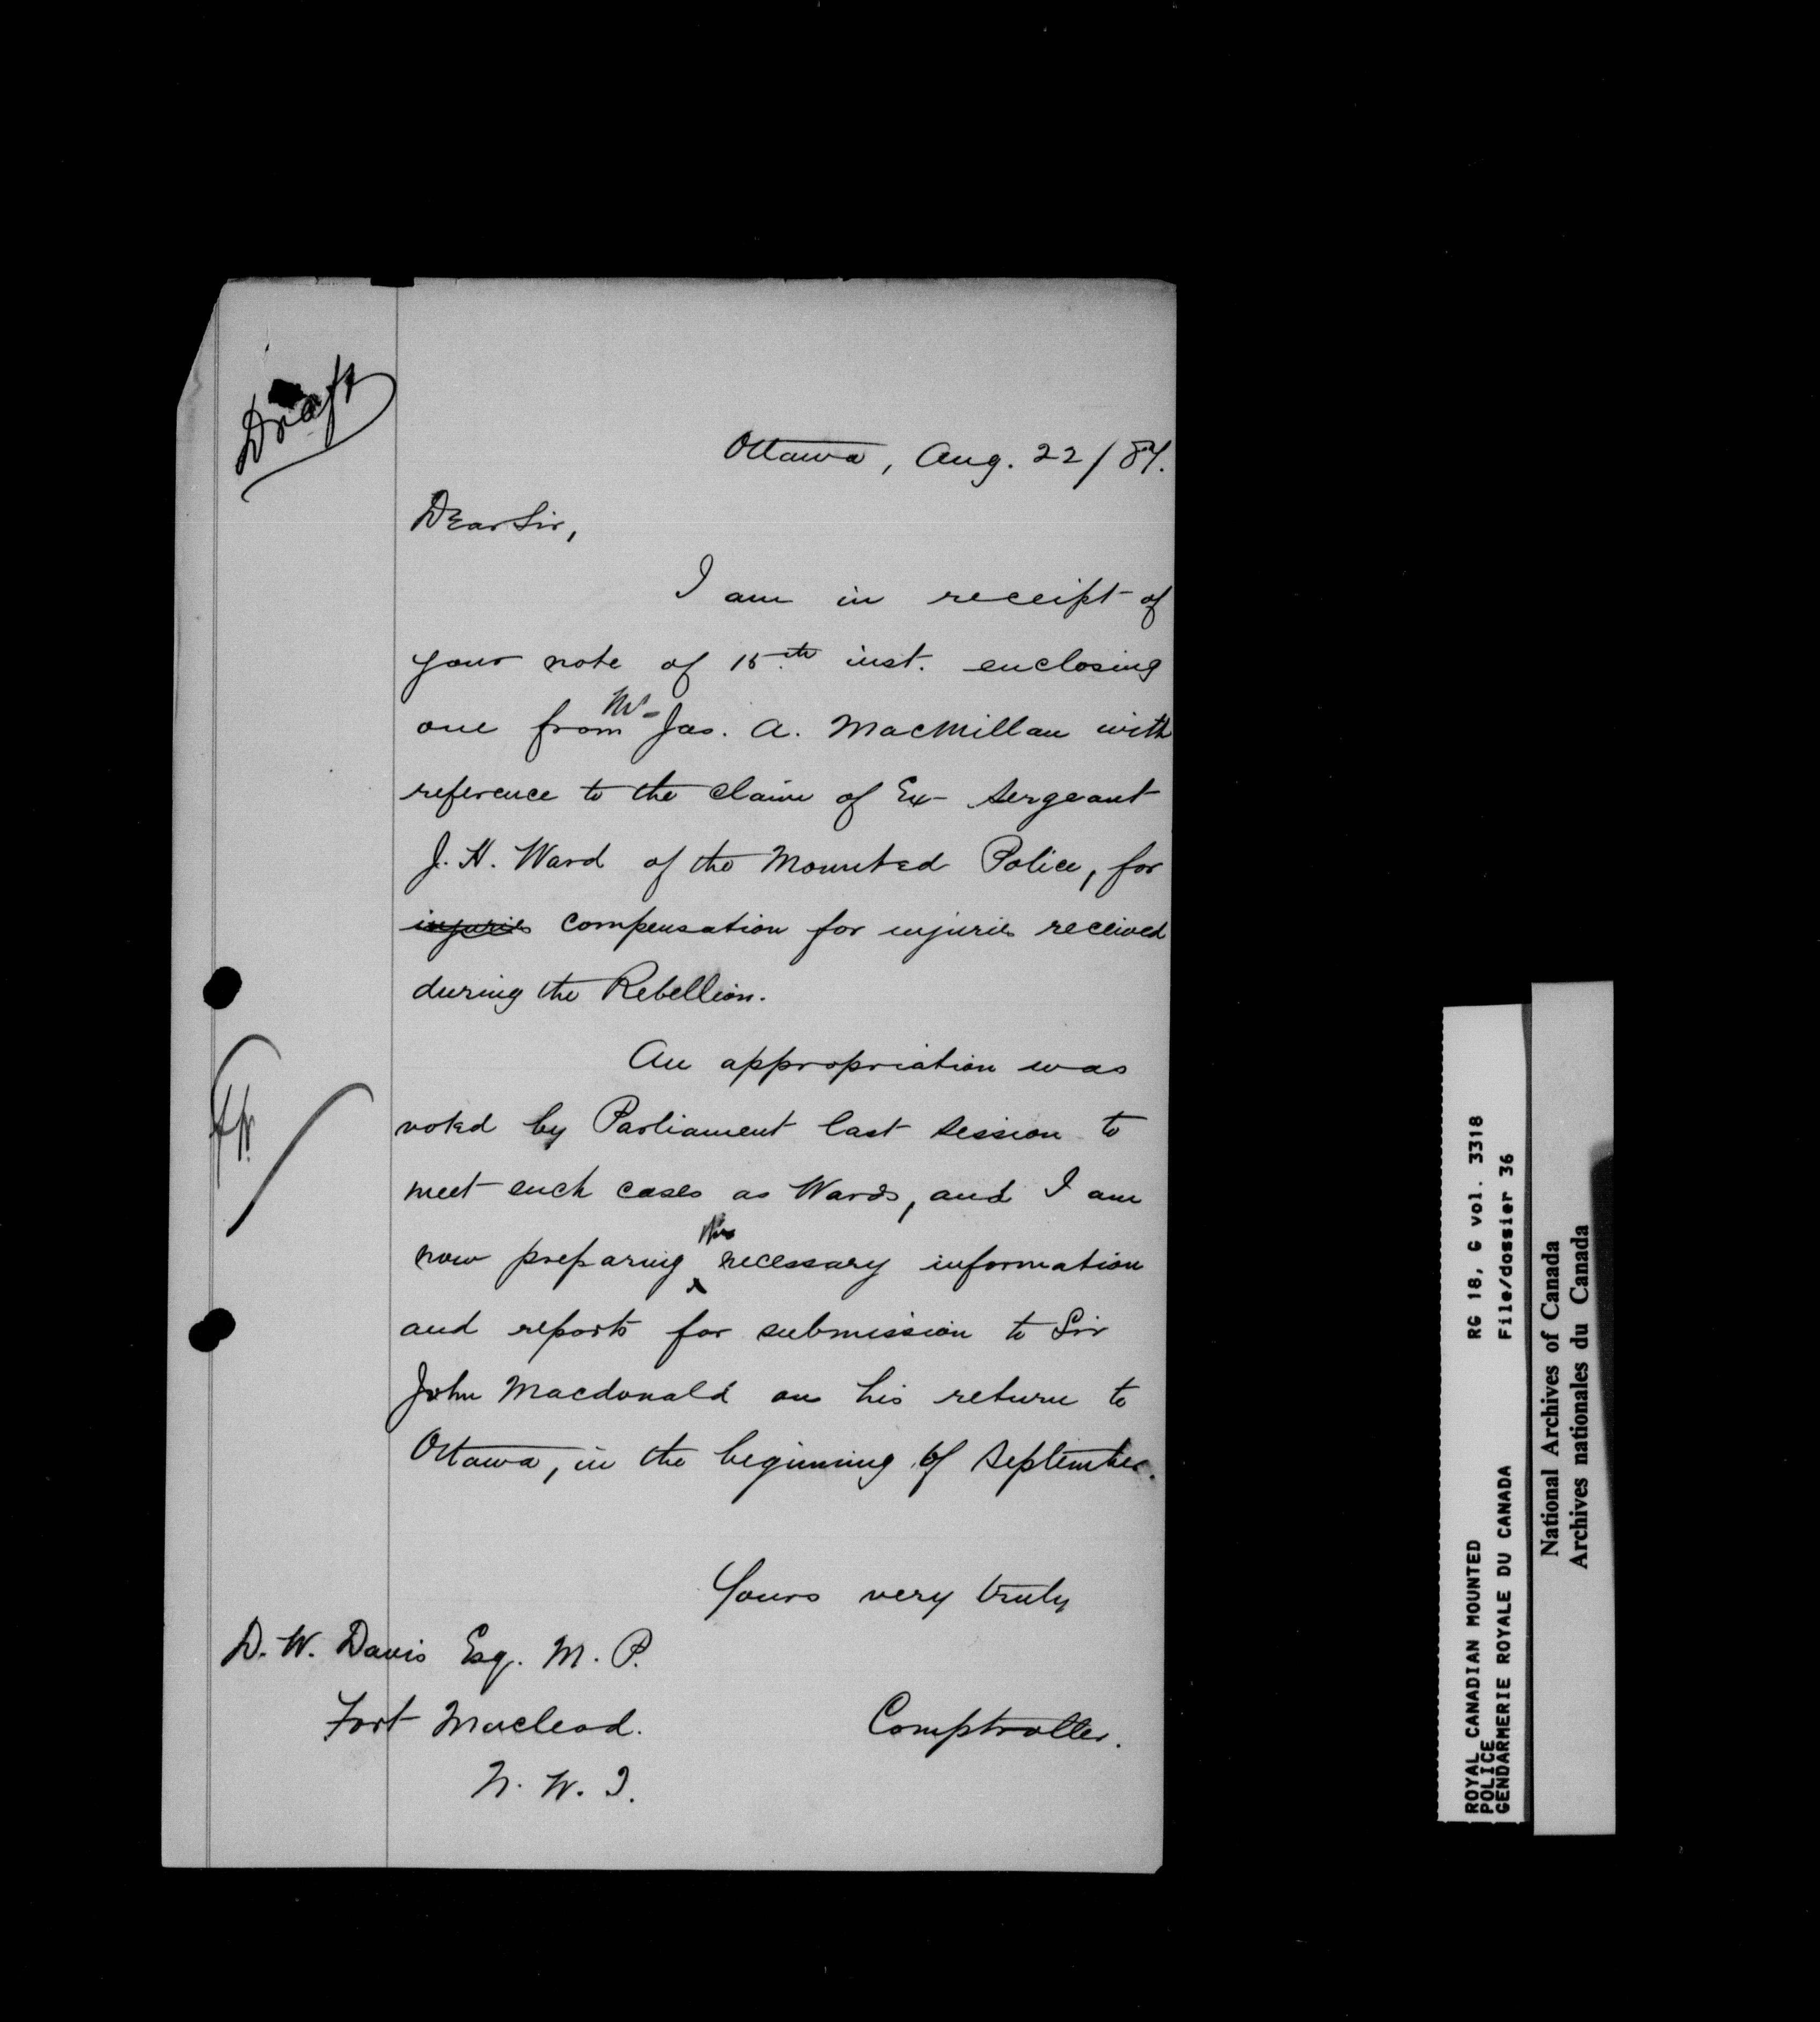 Draft
Ottawa, Aug. 22/87.
Dear Sir,
I am in receipt of
your note of 15th inst. enclosing
one from Mr Jas. A. MacMillan with
reference to the claim of Ex-Sergeant
J. H. Ward of the Mounted Police, for
injuries compensation for injuries received
during the Rebellion.
An appropriation was
voted by Parliament last session to
meet such cases as Wards, and I am
now preparing the necessary information
and reports for submission to Sir
John Macdonald on his return to
Ottawa, in the beginning of September.
Yours very truly
D. W. Davis Esq. M. P.
Fort Macleod.
Comptroller.
N. W. T.
ROYAL CANADIAN MOUNTED RG 18, G vol. 3318
POLICE File/dossier 36
GENDARMERIE ROYALE DU CANADA
National Archives of Canada
Archives nationales du Canada